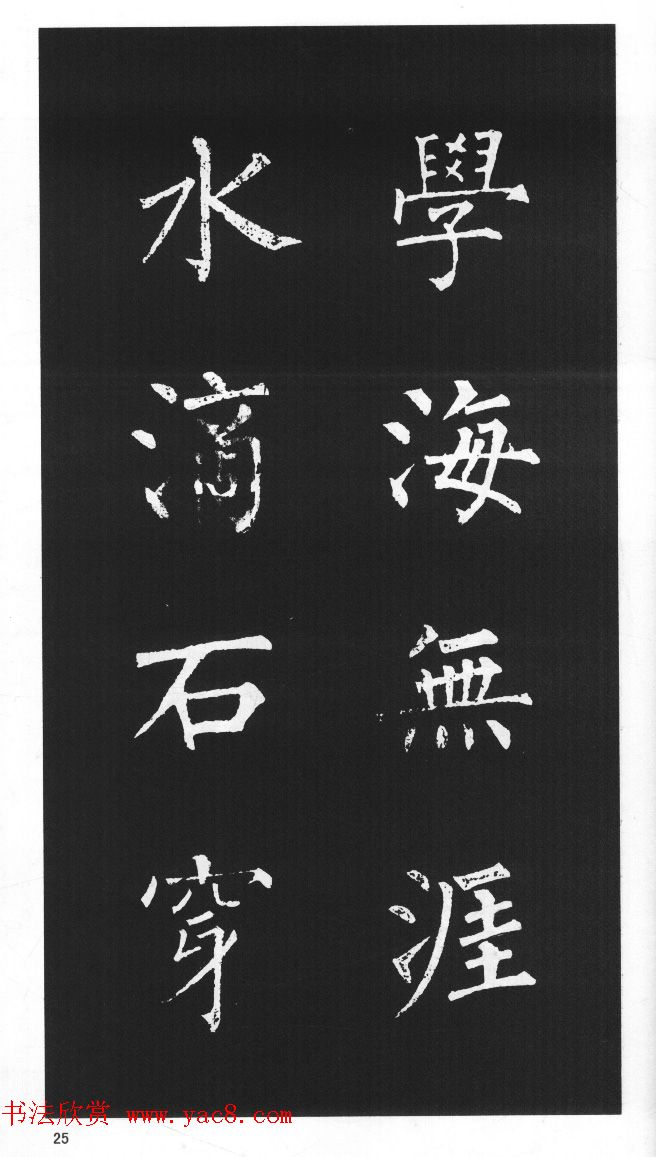 學海無涯
水滴石穿
书法欣赏 www.yac8.com
25